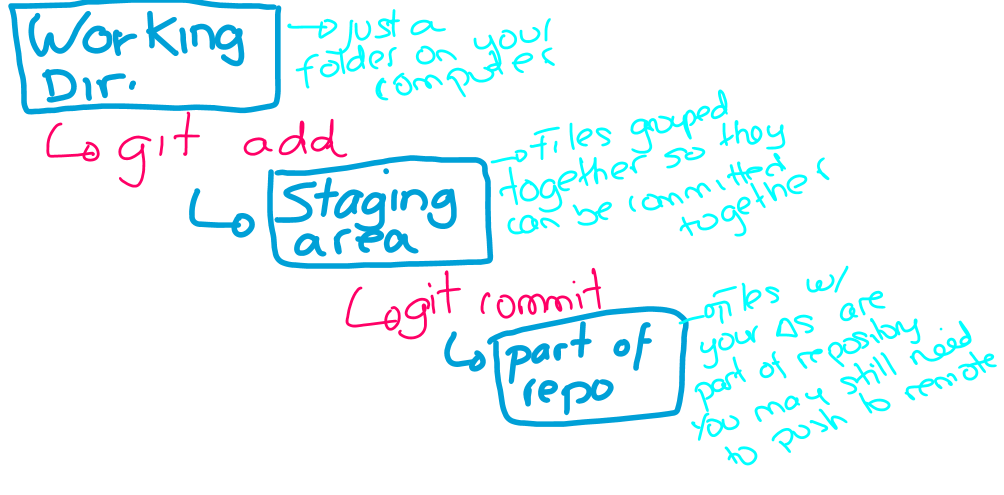 Working
Dir.
just a
folder on your
computer
git add
Staging
area
Files grouped
together so they
can be committed
together
git commit
part of
repo
Files w/
your Δs are
part of repository
You may still need
to push to remote